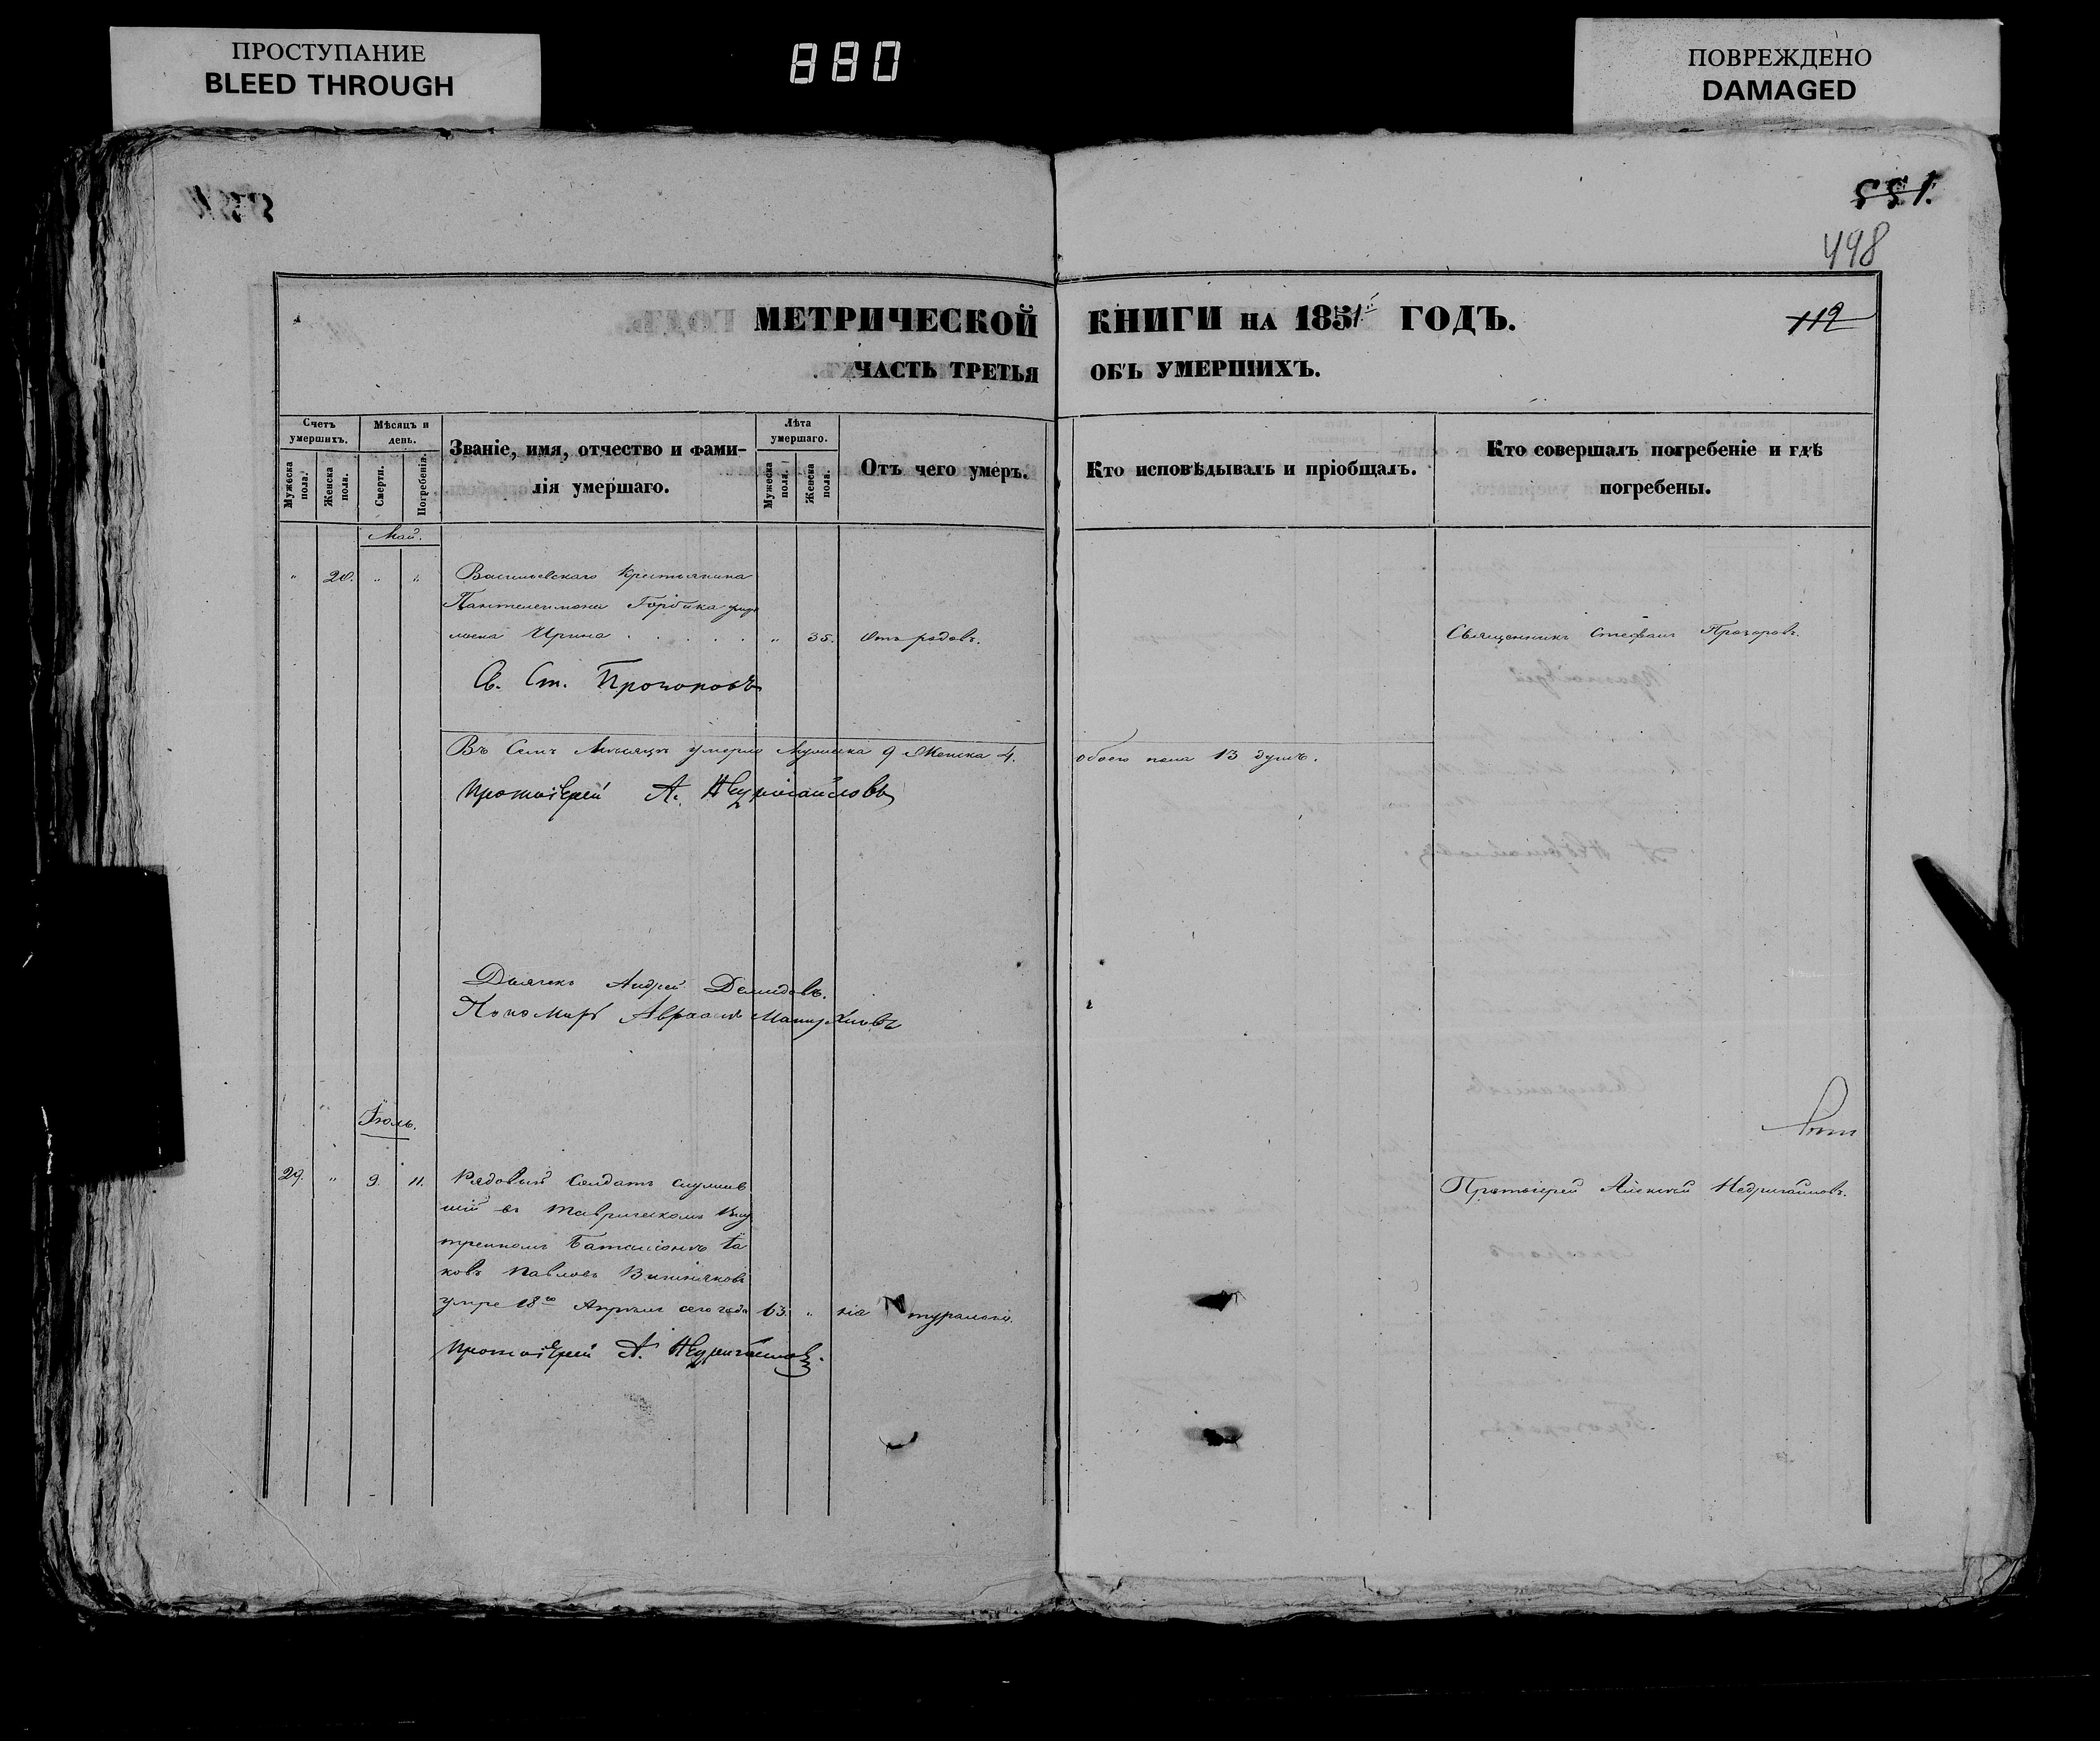 ПРОСТУПАНИЕ
BLEED THROUGH
880
ПОВРЕЖДЕНО
DAMAGED
551.
498
МЕТРИЧЕСКОЙ КНИГИ НА 1851 ГОДЪ.
112
ЧАСТЬ ТРЕТЬЯ ОБЪ УМЕРШИХЪ.
Счетъ умершихъ.
Мужеска пола.
Женска пола.
Мѣсяцъ и день.
Смерти.
Погребенія.
Званіе, имя, отчество и фамилія умершаго.
Лѣта умершаго.
Мужеска пола.
Женска пола.
Отъ чего умеръ.
Кто исповѣдывалъ и пріобщалъ.
Кто совершалъ погребеніе и гдѣ погребены.
Май.
" 20. " " Васильевскаго Крестьянина
Пантелеимона
жена Ирина . . . . . " 35. Отъ родовъ. Священникъ Стефанъ Прохоровъ.
Св. Ст. Прохоровъ
Въ Семъ Мѣсяцѣ умерло Мужеска 9 Женска 4. обоего пола 13 душъ.
Протоіерей А. Недригайловъ
Дьячекъ Андрей Демидовъ.
Пономарь Авраамъ
Іюль.
29. " 9. 11. Рядовый Солдатъ служив
шій въ Таврическомъ Вну
треннемъ Баталіонѣ Іа
ковъ Павловъ Вишняковъ
умре 18го Апрѣля сего года 63. "
Протоіерей Алексѣй Недригайловъ.
Протоіерей А. Недригайловъ.